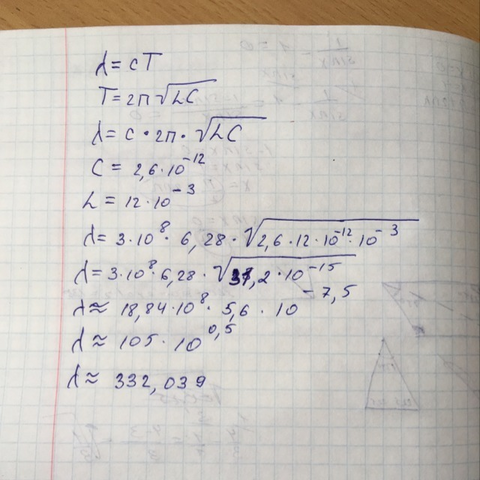 λ = cT
T = 2π√LC
λ = c · 2π · √LC
C = 2,6 · 10⁻¹²
L = 12 · 10⁻³
λ = 3 · 10⁸ · 6,28 · √2,6 · 12 · 10⁻¹² · 10⁻³
λ = 3 · 10⁸ · 6,28 · √31,2 · 10⁻¹⁵
λ ≈ 18,84 · 10⁸ · 5,6 · 10⁻⁷,⁵
λ ≈ 105 · 10⁰,⁵
λ ≈ 332,039